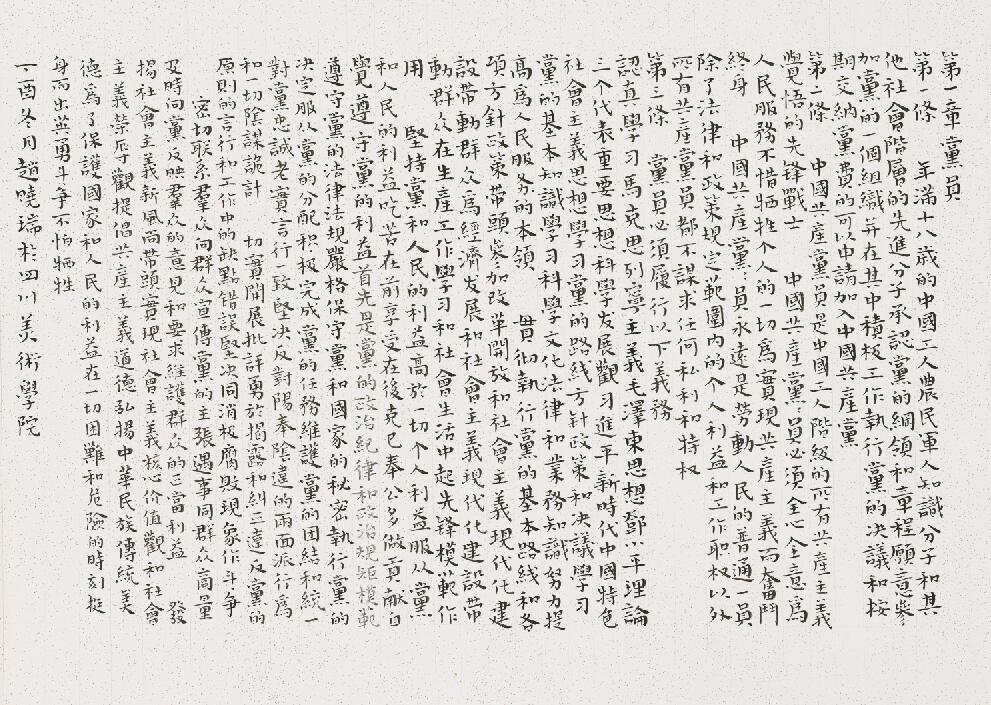 第一章黨員
第一條　年滿十八歲的中國工人農民軍人知識分子和其
他社會階層的先進分子承認黨的綱領和章程願意參
加黨的一個組織并在其中積极工作執行黨的决議和按
期交納黨費的可以申請加入中國共產黨
第二條　中國共產黨員是中國工人階級的有共產主義
覺悟的先锋戰士　中國共產黨員必須全心全意爲
人民服務不惜牺牲个人的一切爲實現共產主義而奮鬥
終身　中國共產黨員永遠是勞動人民的普通一員
除了法律和政策規定範圍内的个人利益和工作职权以外
所有共產黨員都不謀求任何私利和特权
第三條　黨員必須履行以下義務
認真學习馬克思列寧主義毛澤東思想鄧小平理論
三个代表重要思想科學发展觀习進平新時代中國特色
社會主義思想學习黨的路线方針政策和决議學习
黨的基本知識學习科學文化法律和業務知識努力提
高爲人民服务的本領　貫彻執行黨的基本路线和各
項方針政策带頭參加改革開放和社會主義現代化建
設带動群众爲經濟发展和社會主義現代化建設带
動群众在生産工作學习和社會生活中起先锋模範作
用　堅持黨和人民的利益高於一切个人利益服从黨
和人民的利益吃苦在前享受在後克己奉公多做貢献自
覺遵守黨的利益首先是黨的政治紀律和政治規矩模範
遵守黨的法律法規嚴格保守黨和國家的秘密執行黨的
决定服从黨的分配积极完成黨的任務維護黨的团結和統一
對黨忠誠老實言行一致堅决反對陽奉陰違的兩面派行爲
和一切陰謀詭計　切實開展批評勇於揭露和糾正違反黨的
原則的言行和工作中的缺點错誤堅决同消极腐敗現象作斗争
密切联系羣众向群众宣傳黨的主張遇事同群众商量
及時向黨反映羣众的意見和要求維護群众的正當利益　發
揚社會主義新風尚带頭實現社會主義核心价值觀和社會
主義榮辱觀提倡共産主義道德弘揚中華民族傳統美
德爲了保護國家和人民的利益在一切困難和危險的時刻挺
身而出英勇斗争不怕牺牲
丁酉冬月趙曉瑞於四川美術學院